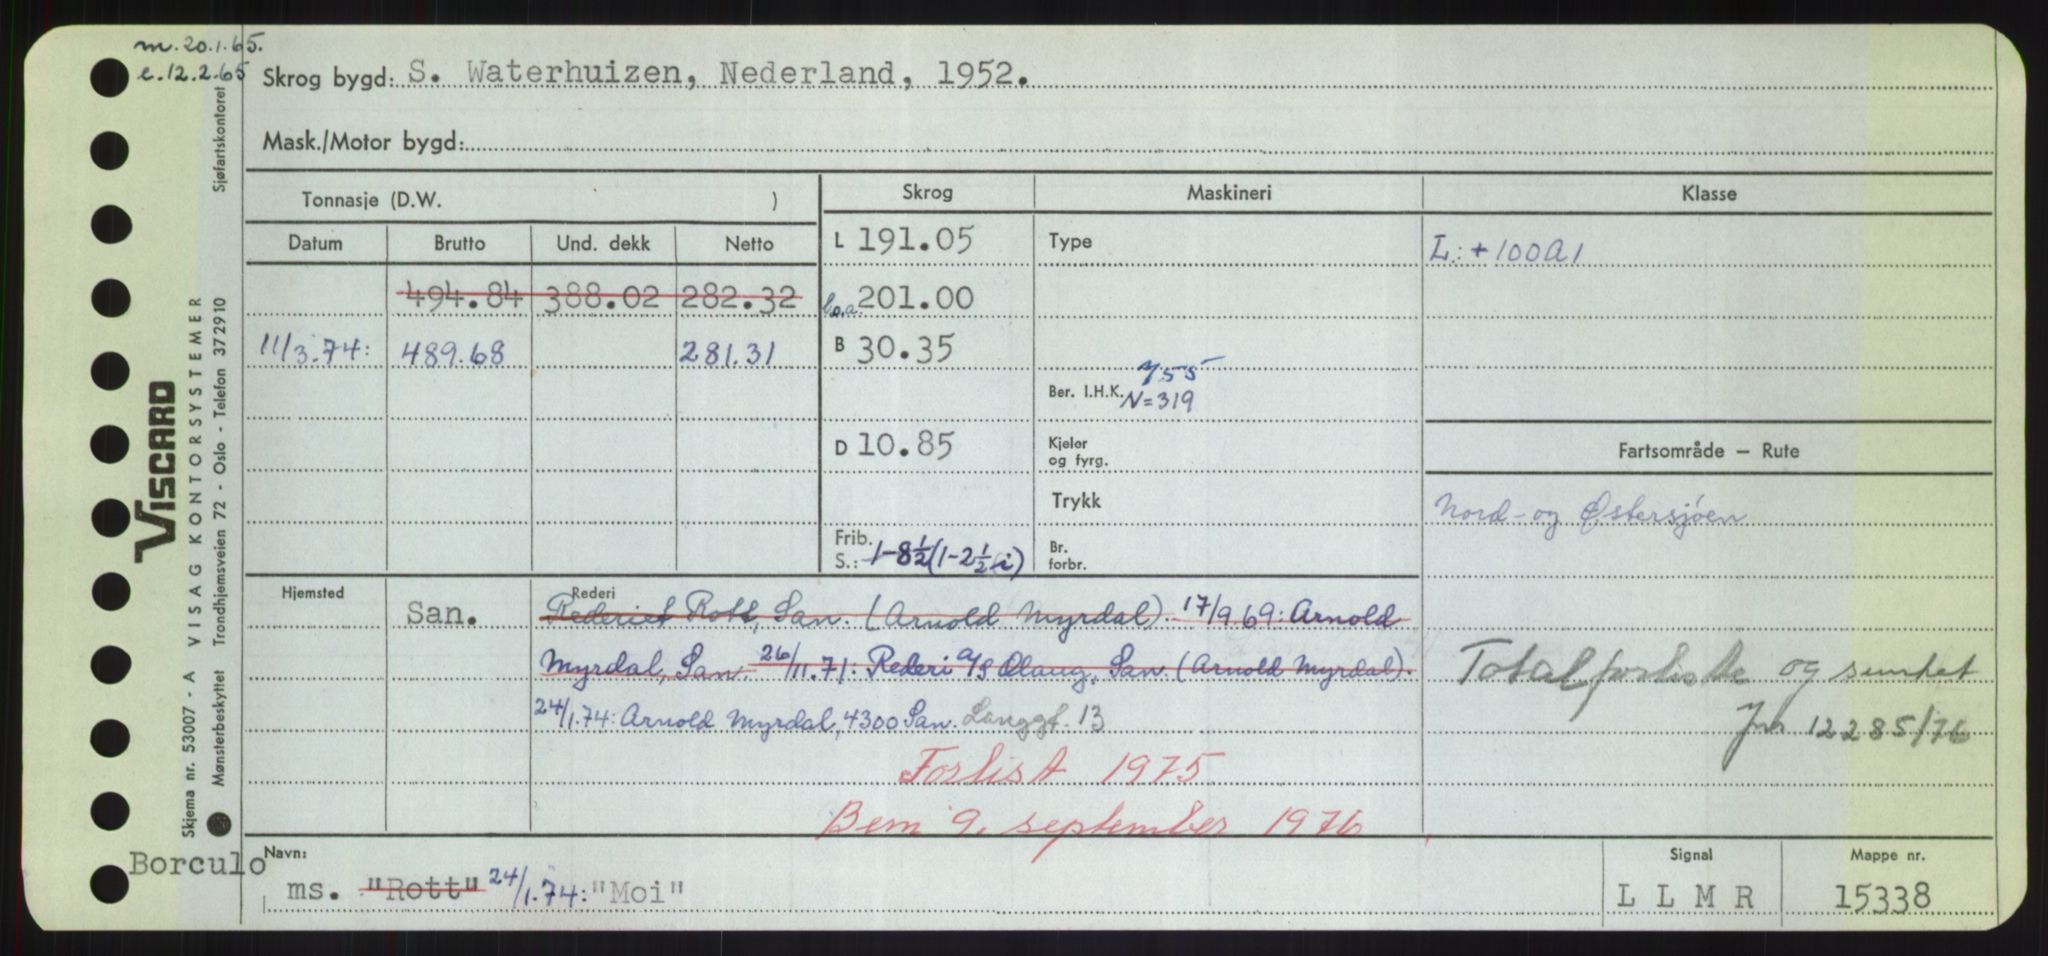 m. 20.1.65.
e. 12.2.65
Skrog bygd: S. Waterhuizen, Nederland, 1952.
Mask./Motor bygd:
Tonnasje (D.W. )
Skrog
Maskineri
Klasse
Datum Brutto Und. dekk Netto
L 191.05
Type
L: + 100A1
494.84 388.02 282.32
l.o.a. 201.00
11/3.74: 489.68 281.31
B 30.35
Ber. I.H.K. 755
N=319
D 10.85
Kjeler
og fyrg.
Fartsområde — Rute
Trykk
Nord- og Østersjøen
Frib.
S.: 1-8½ (1-2½ i)
Br.
forbr.
Hjemsted
San.
Rederi
Rederiet Rott, San. (Arnold Myrdal). 17/9 69: Arnold
Myrdal, San. 26/11.71: Rederi A/S Olaug, San. (Arnold Myrdal).
24/1.74: Arnold Myrdal, 4300 San. Langgt. 13
Forlist 1975
Bem 9. september 1976
Totalforliste og sunket
Jnr 12285/76
Borculo
Navn:
ms. "Rott" 24/1.74: "Moi"
Signal
L L M R
Mappe nr.
15338
VISCARD
Skjema nr. 53007 - A VISAG KONTORSYSTEMER
Mønsterbeskyttet Trondhjemsveien 72 - Oslo - Telefon 372910 Sjøfartskontoret